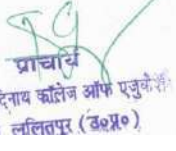 प्राचार्य
दिनाथ कॉलेज ऑफ एजुकेशन
ललितपुर (उ०प्र०)